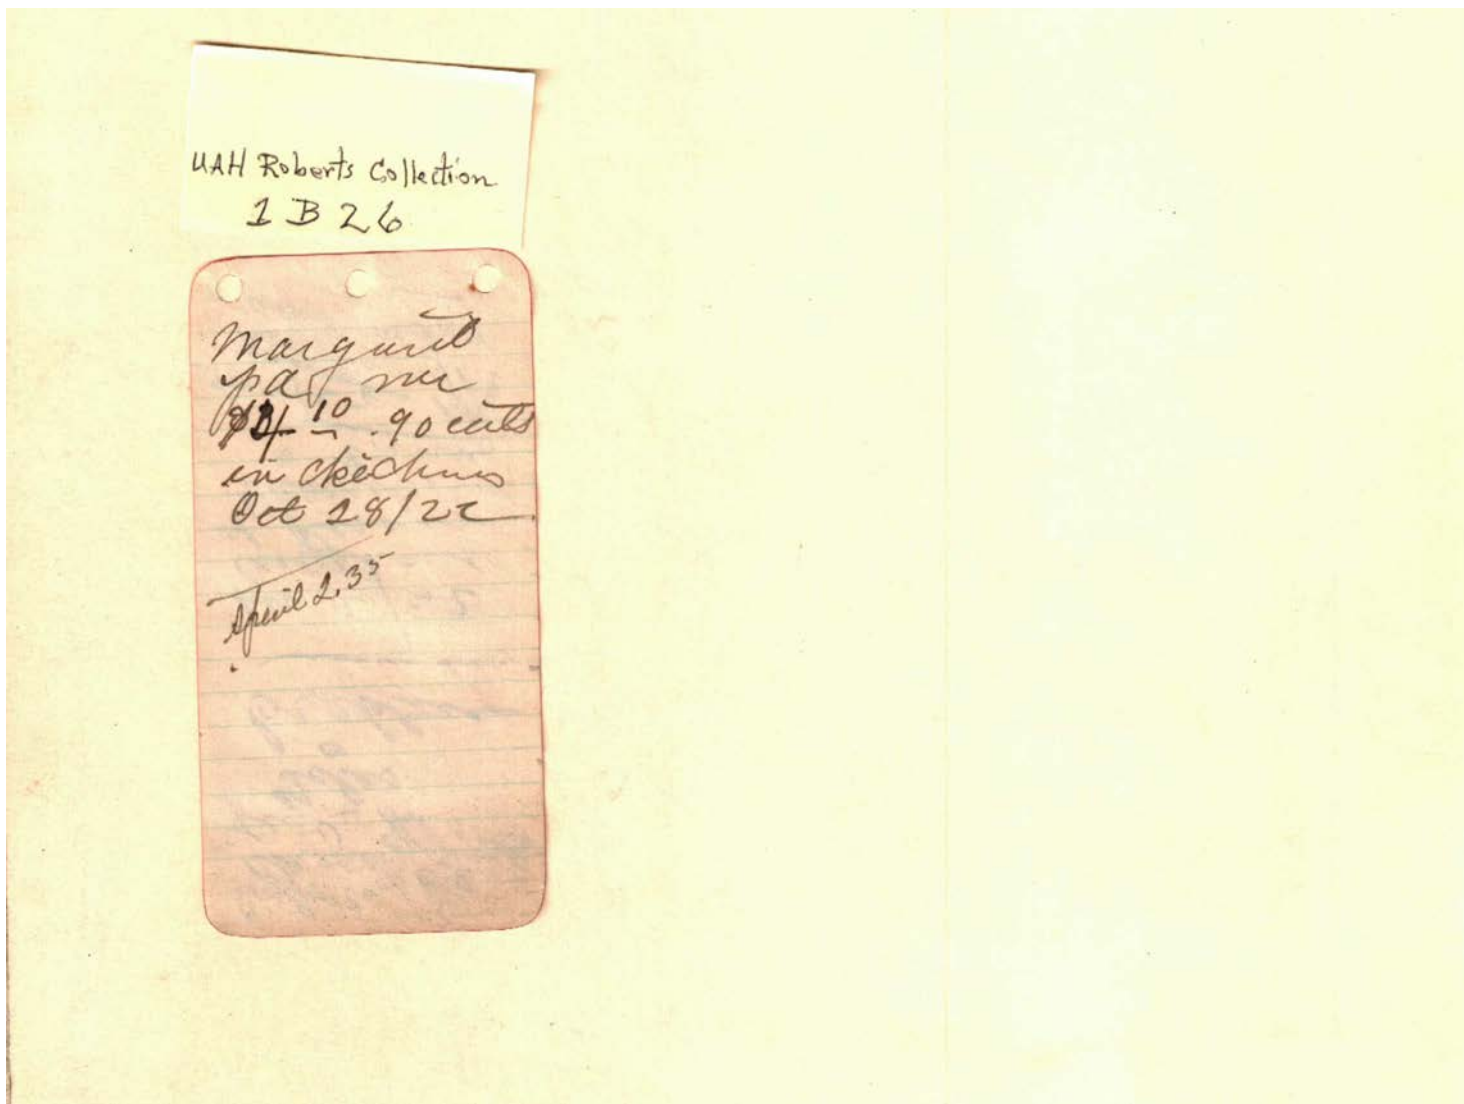 UAH Roberts Collection
1 B 26
Margaret
pd me
$4 10 .90 cents
in chickens
Oct 28/22
April 2, 35